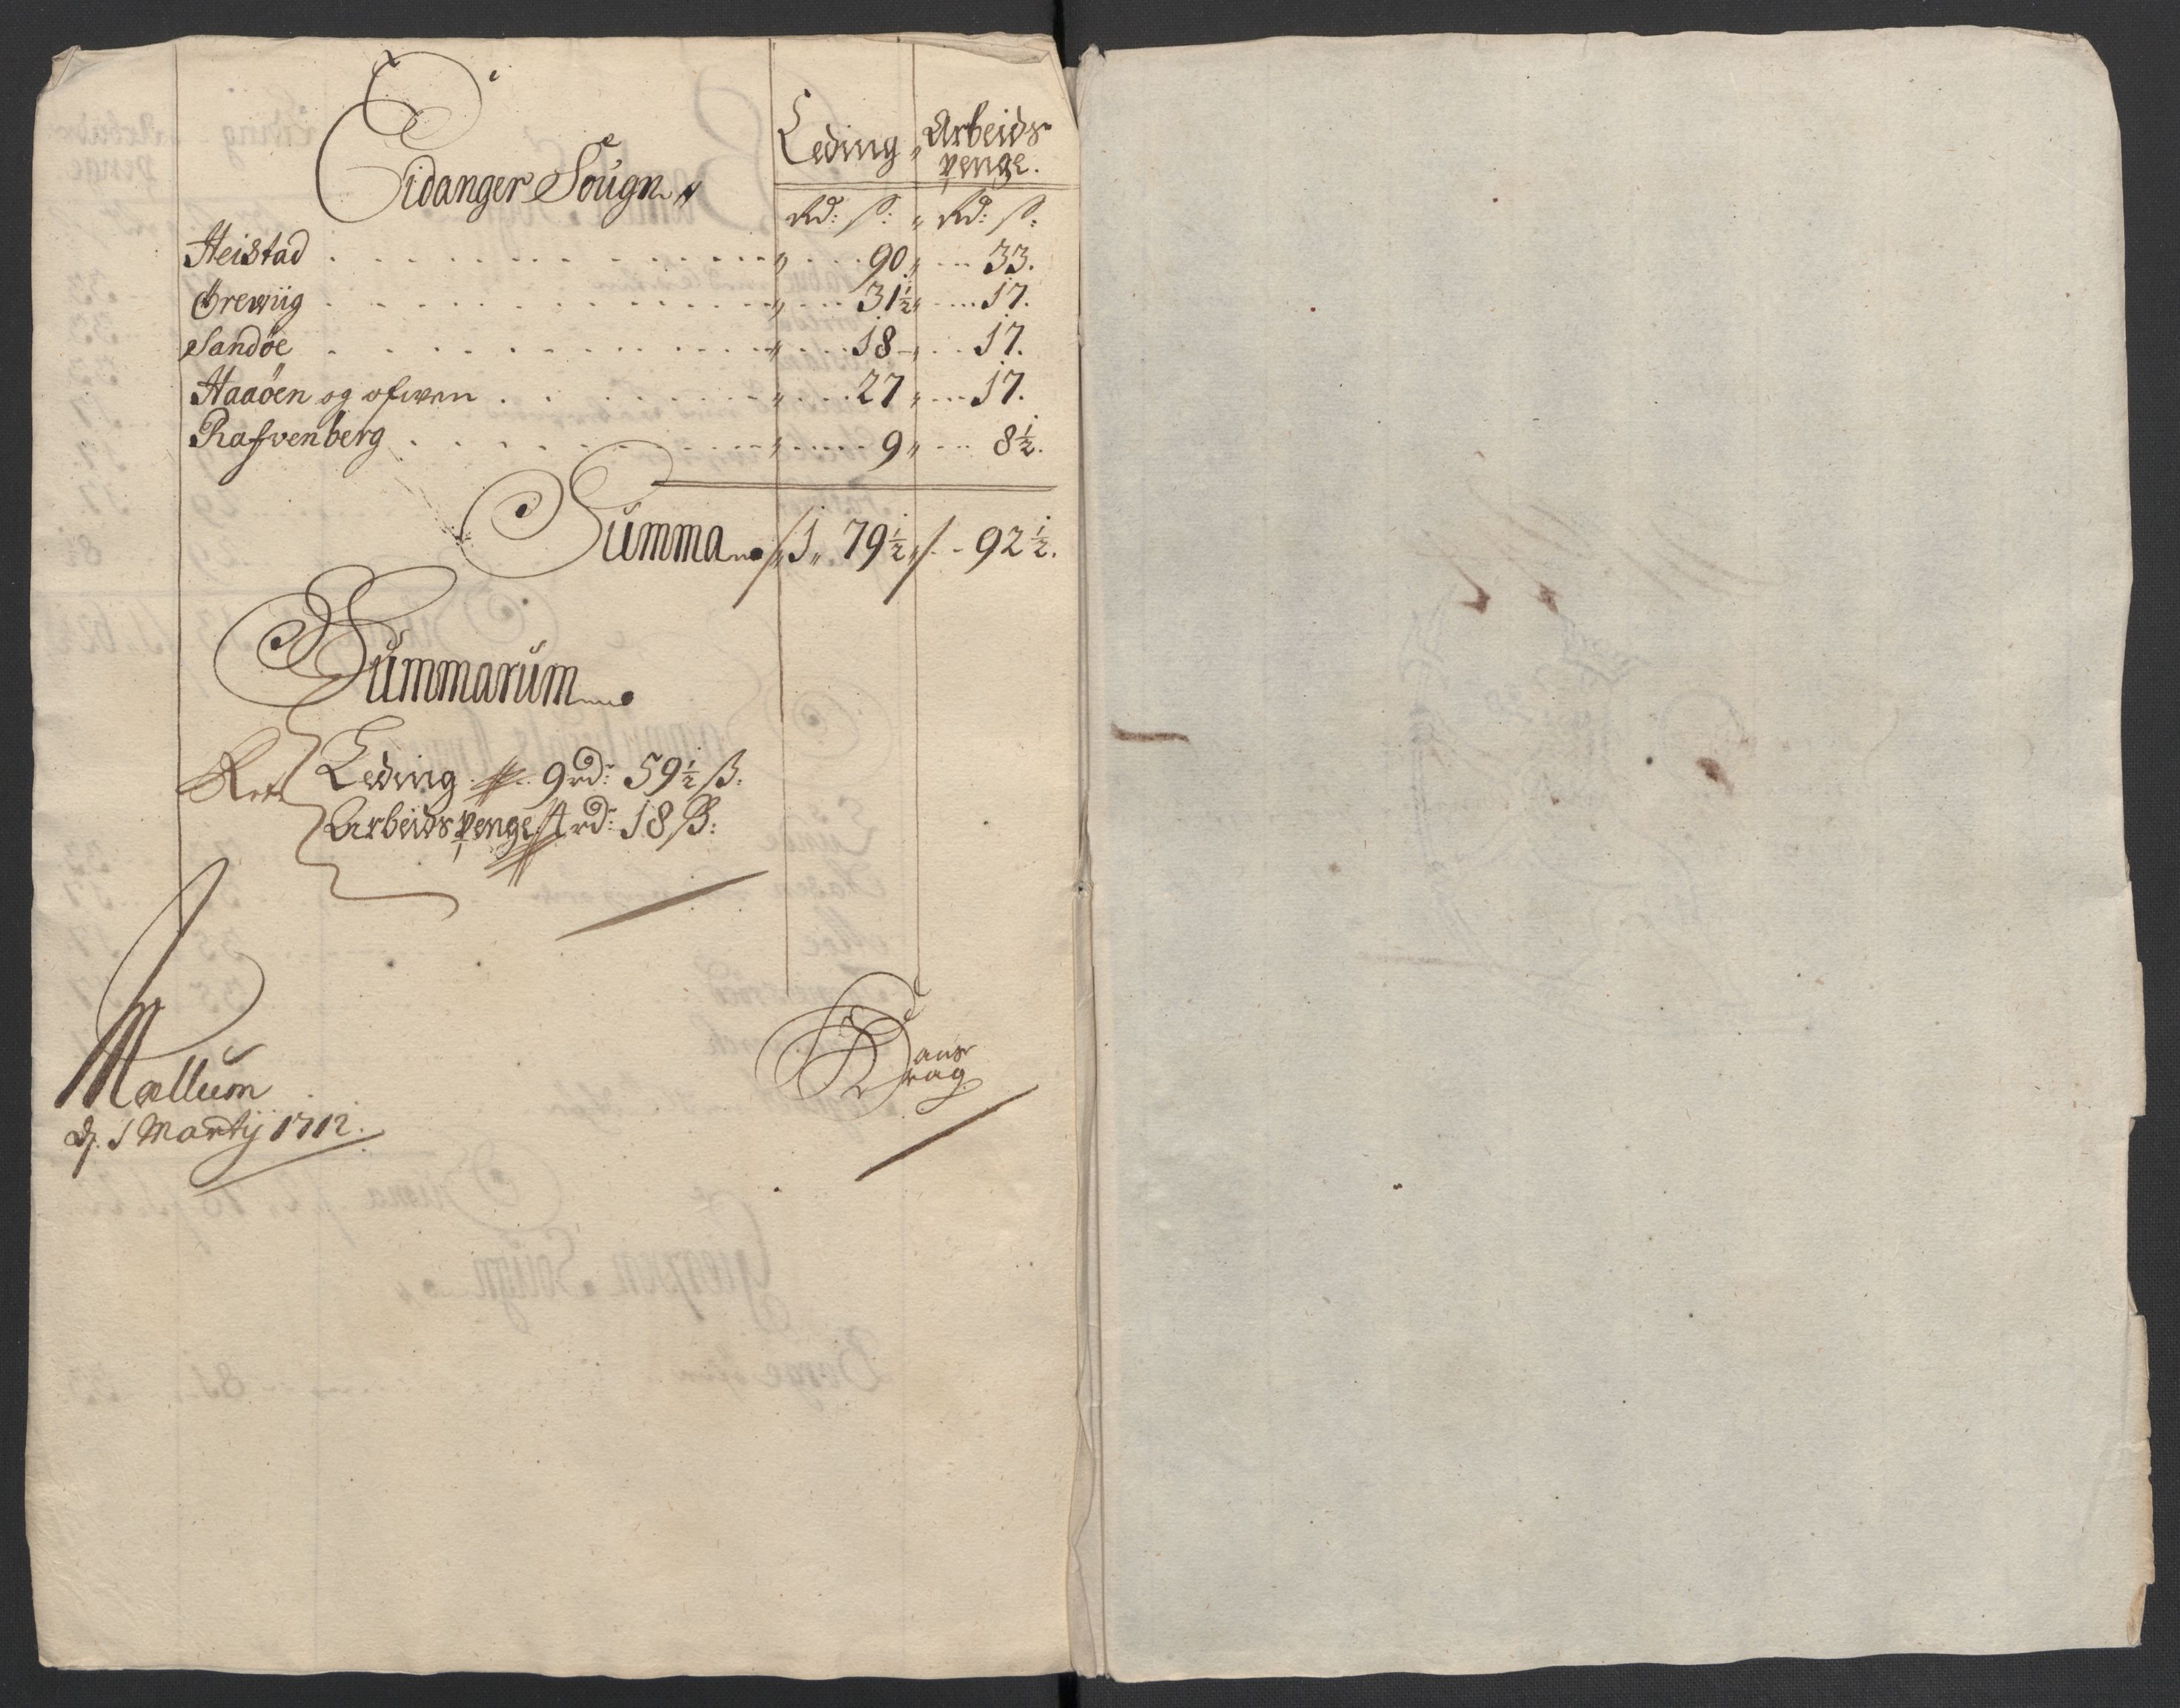 Eidanger Sougn
Leding Arbeids
penge.
Rd: ß: Rd: ß:
Heistad 90 33.
Örewiig 31½ 17.
Sandöe 18 17.
Haaöen og ofwen 27 17.
Rafwenberg 9 8½.
Summa 1 79½ 92½.
Summarum
Leding 9 rd: 59½ ß:
Arbeidspenge 4 rd: 18 ß:
Mællum
d. 1 Martij 1712.
Hans
Krag